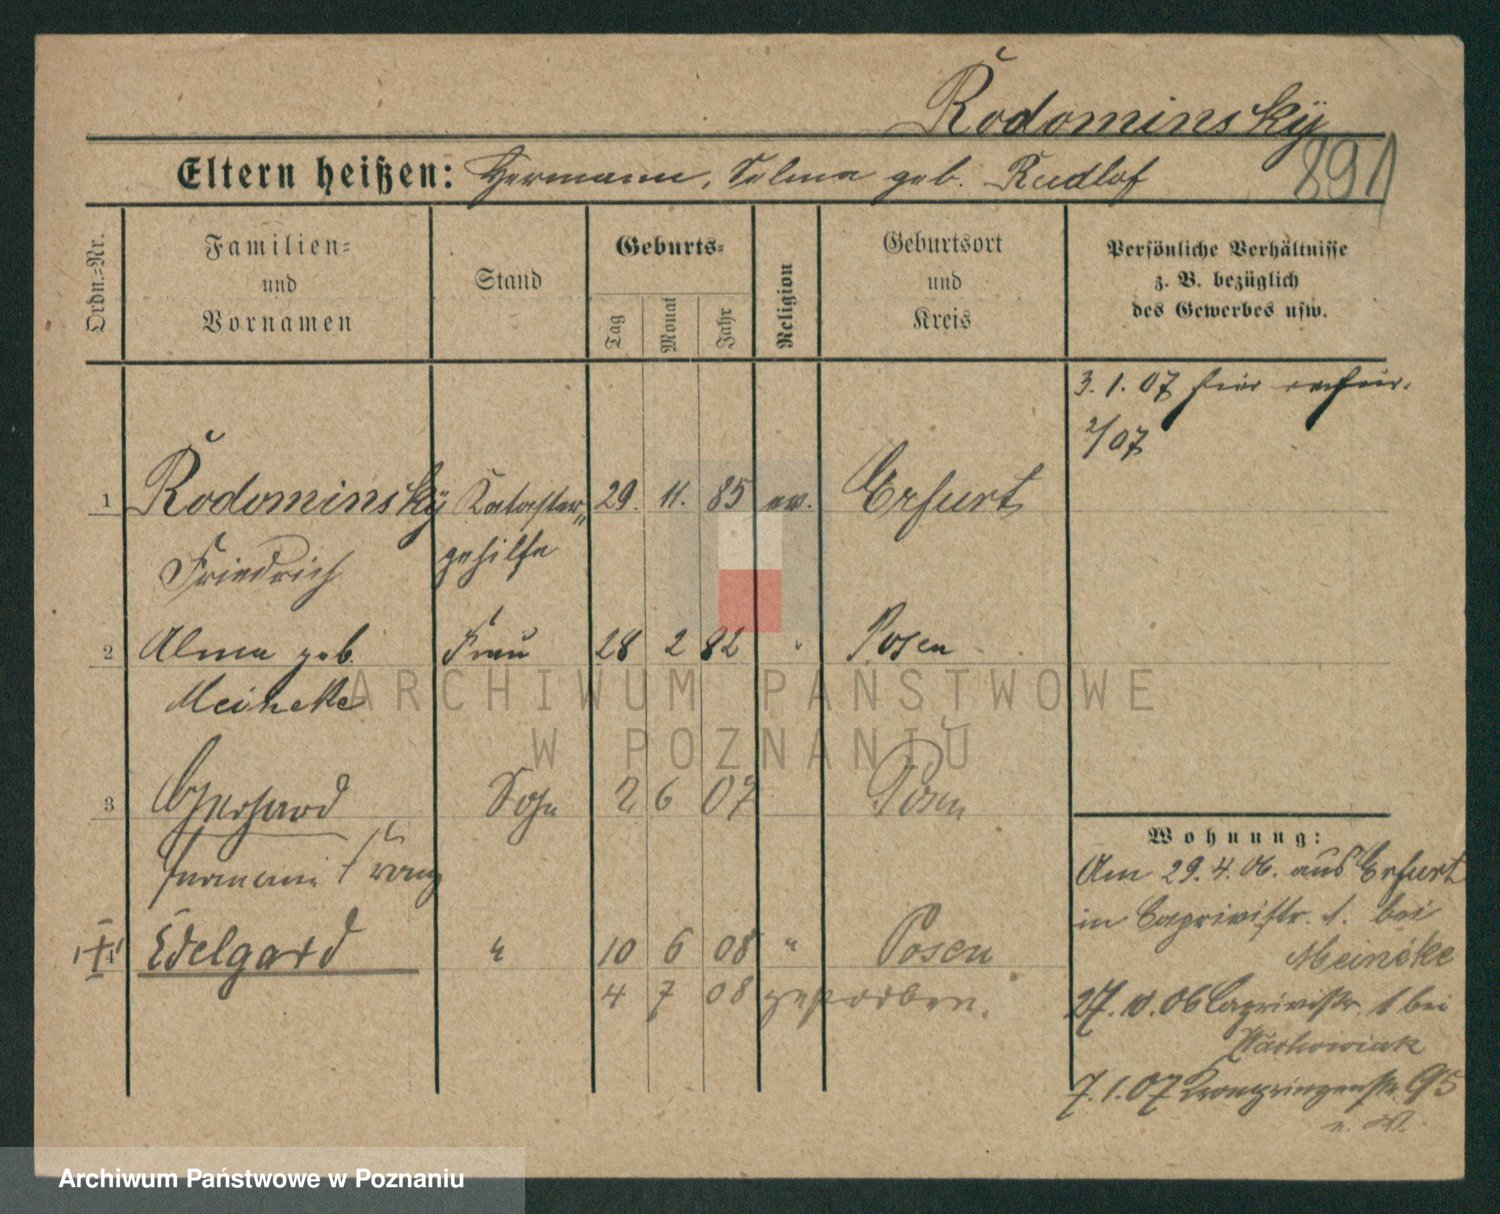 Rodominsky
891
Eltern heißen: Hermann, Selma geb. Rudlof
Ordn.=Nr.
Familien= und Vornamen
Stand
Geburts=
Tag
Monat
Jahr
Religion
Geburtsort und Kreis
Persönliche Verhältnisse
z. B. bezüglich
des Gewerbes usw.
3. 1. 07 hier
2/07
1 Rodominsky Kataster„ 29. 11. 85 ev. Erfurt
Friedrich gehilfe
2 Alma geb. Frau 28 2 82 " Posen
Meineke
ARCHIWUM PAŃSTWOWE
W POZNANIU
3 Gerhard Sohn 2 6 07 Posen
Hermann Franz
4 Edelgard " 10 6 08 " Posen
4 7 08 gestorben.
Wohnung:
Am 29. 4. 06. aus Erfurt
in Caprivistr. 1. bei
Meineke
27. 10. 06 Caprivistr. 1 bei
Stachowiak
7. 1. 07 Kronprinzenstr. 95
Archiwum Państwowe w Poznaniu